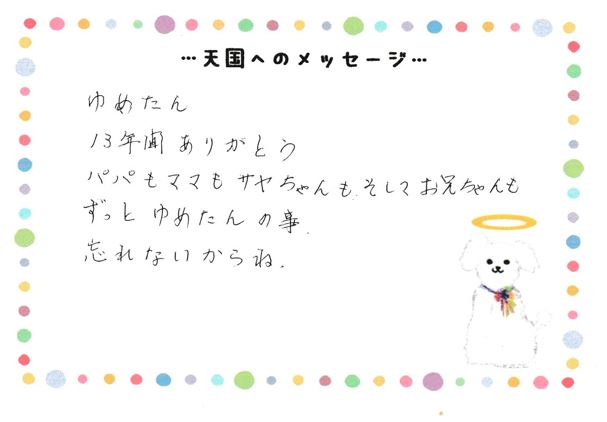 …天国へのメッセージ…
ゆめたん
13年間ありがとう
パパもママもサヤちゃんも.そしてお兄ちゃんも
ずっとゆめたんの事.
忘れないからね.